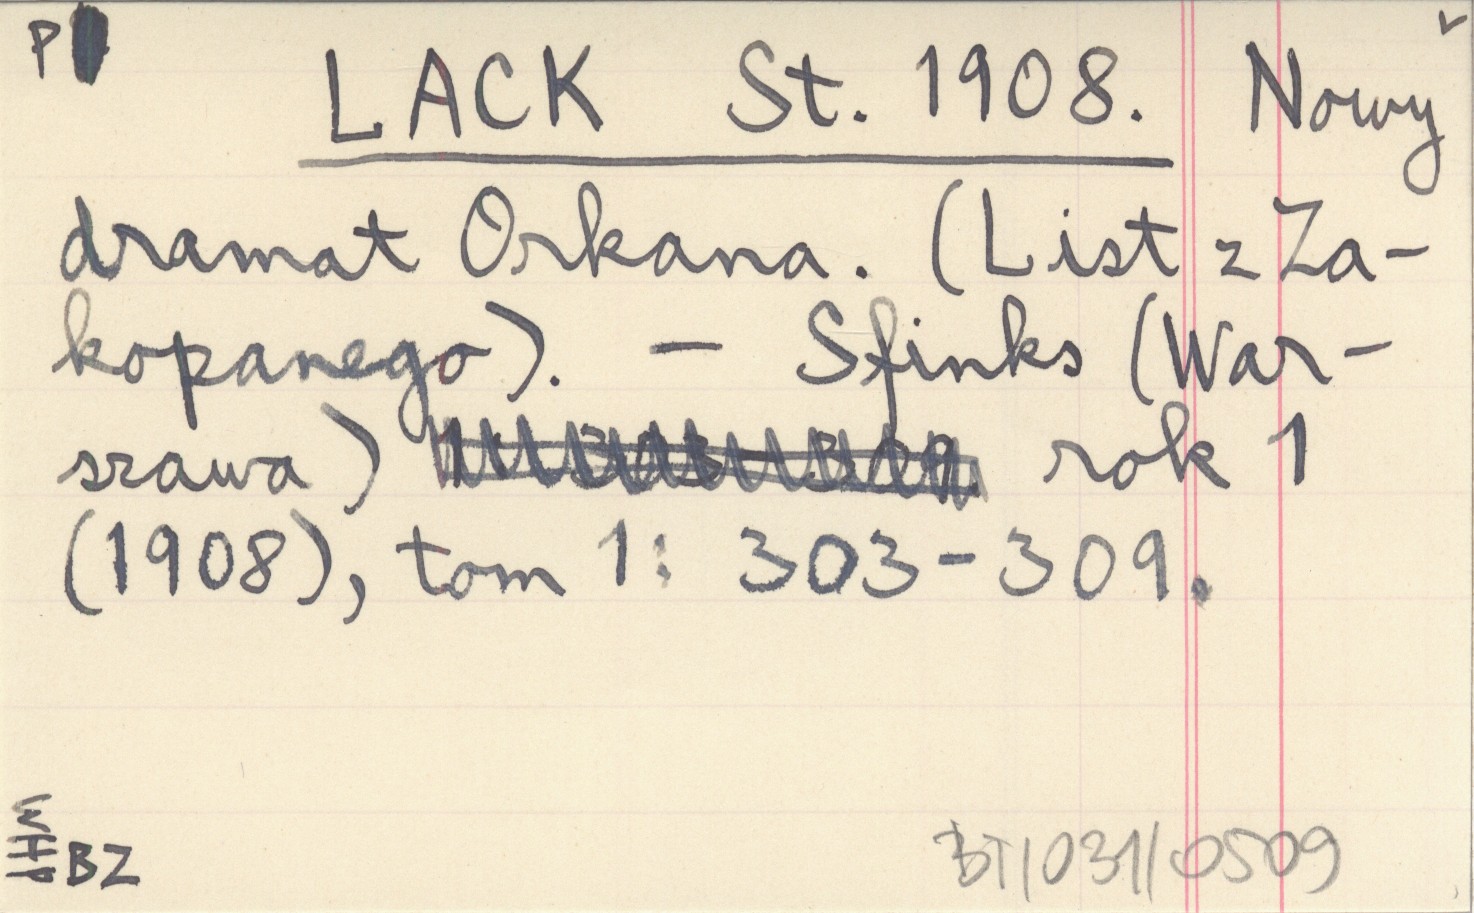 P
LACK St. 1908. Nowy
dramat Orkana. (List z Za-
kopanego). — Sfinks (War-
szawa) rok 1
(1908), tom 1: 303-309.
BZ
BT/031/0509